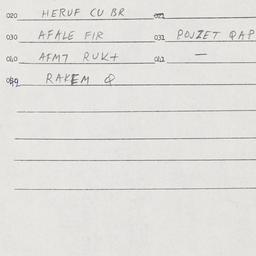 020 HERUF CU BR
030 AFALE FIR 031 POUZET QAP
040 AFM7 RUK+ 042 —
RAKEM Q